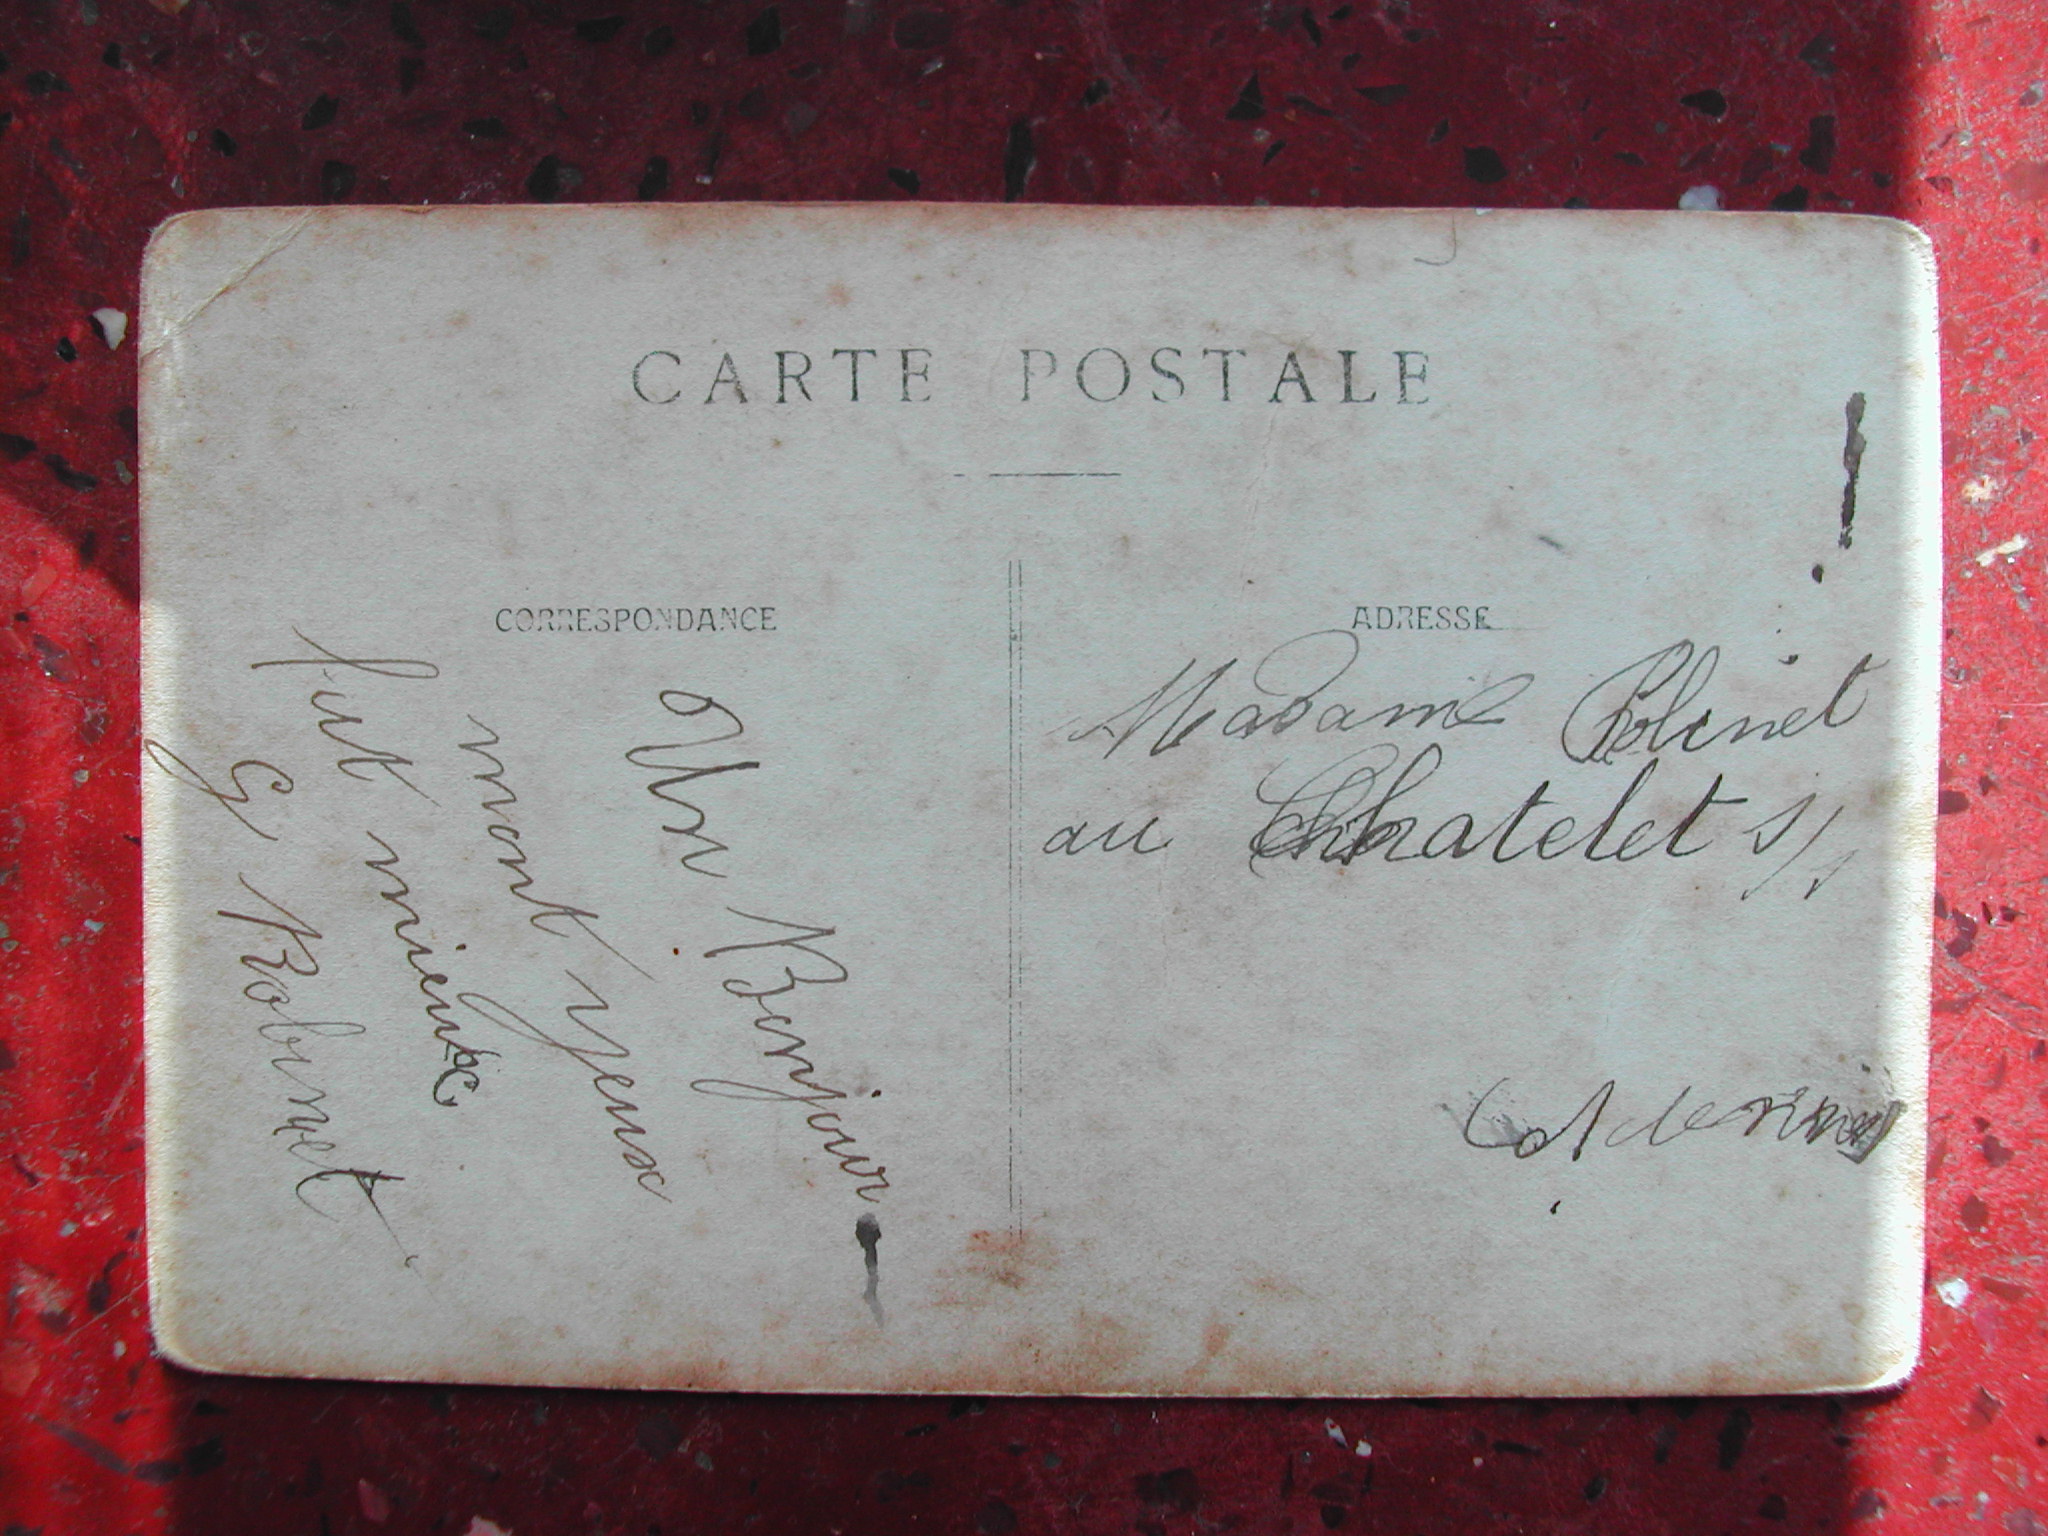 CARTE POSTALE
CORRESPONDANCE
Un Bonjour
mont yeux
fut mieux
G Robinet
ADRESSE
Madame Robinet
au Chatelet s/s